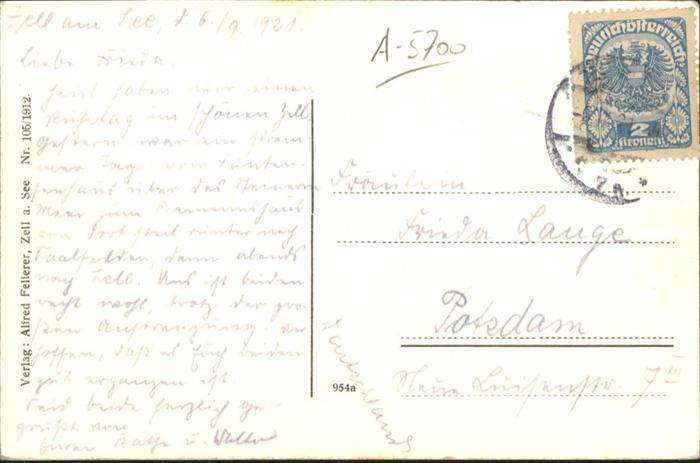 Zell am See, d. 6./9. 1921.
Liebe Frieda.
Heut haben wir einen
Ruhetag im schönen Zell
gestern war ein
Tag: vom
haus über das Steinerne
Meer zum Riemannhaus
von dort steil runter nach
Saalfelden, dann abends
nach Zell. Uns ist beiden
recht wohl, trotz der gro-
ßen Anstrengung wir
hoffen, daß es Euch beiden
gut ergangen ist.
Seid beide herzlich ge-
grüßt von
Euren Käthe u. Walter
A-5700
Deutschösterreich
2
Kronen
Fräulein
Frieda Lange
Potsdam
Neue Luisenstr. 7 III
954a
Verlag: Alfred Fellerer, Zell a. See Nr. 105/1912.